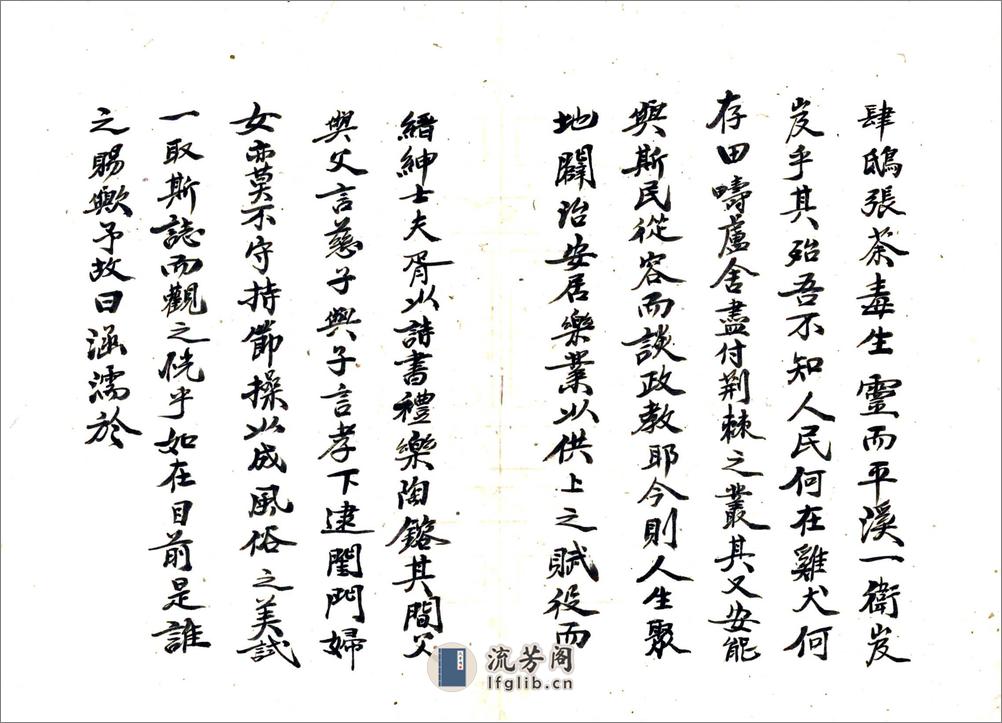 肆鴟張荼毒生靈而平溪一衛岌
岌乎其殆吾不知人民何在雞犬何
存田疇廬舍盡付荆棘之叢其又安能
與斯民從容而談政教耶今則人生聚
地闢治安居樂業以供上之賦役而
縉紳士夫胥以詩書禮樂陶鎔其間父
與父言慈子與子言孝下逮閨門婦
女亦莫不守持節操以成風俗之美試
一取斯誌而觀之恍乎如在目前是誰
之賜歟予故曰涵濡於
流芳阁
lfglib.cn